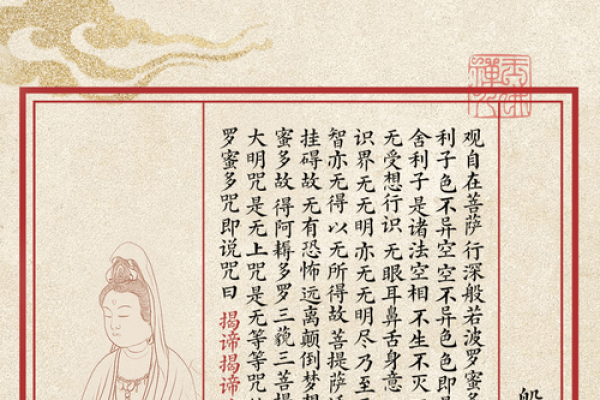 般
观自在菩萨 行深般若波罗蜜多
利子 色不异空 空不异色 色即
舍利子 是诸法空相 不生不灭
无受想行识 无眼耳鼻舌身意
识界 无无明 亦无无明尽 乃至
智亦无得 以无所得故 菩提萨
挂碍故 无有恐怖 远离颠倒梦想
蜜多故 得阿耨多罗三藐三菩提
大明咒 是无上咒 是无等等咒
罗蜜多咒 即说咒曰 揭谛揭谛